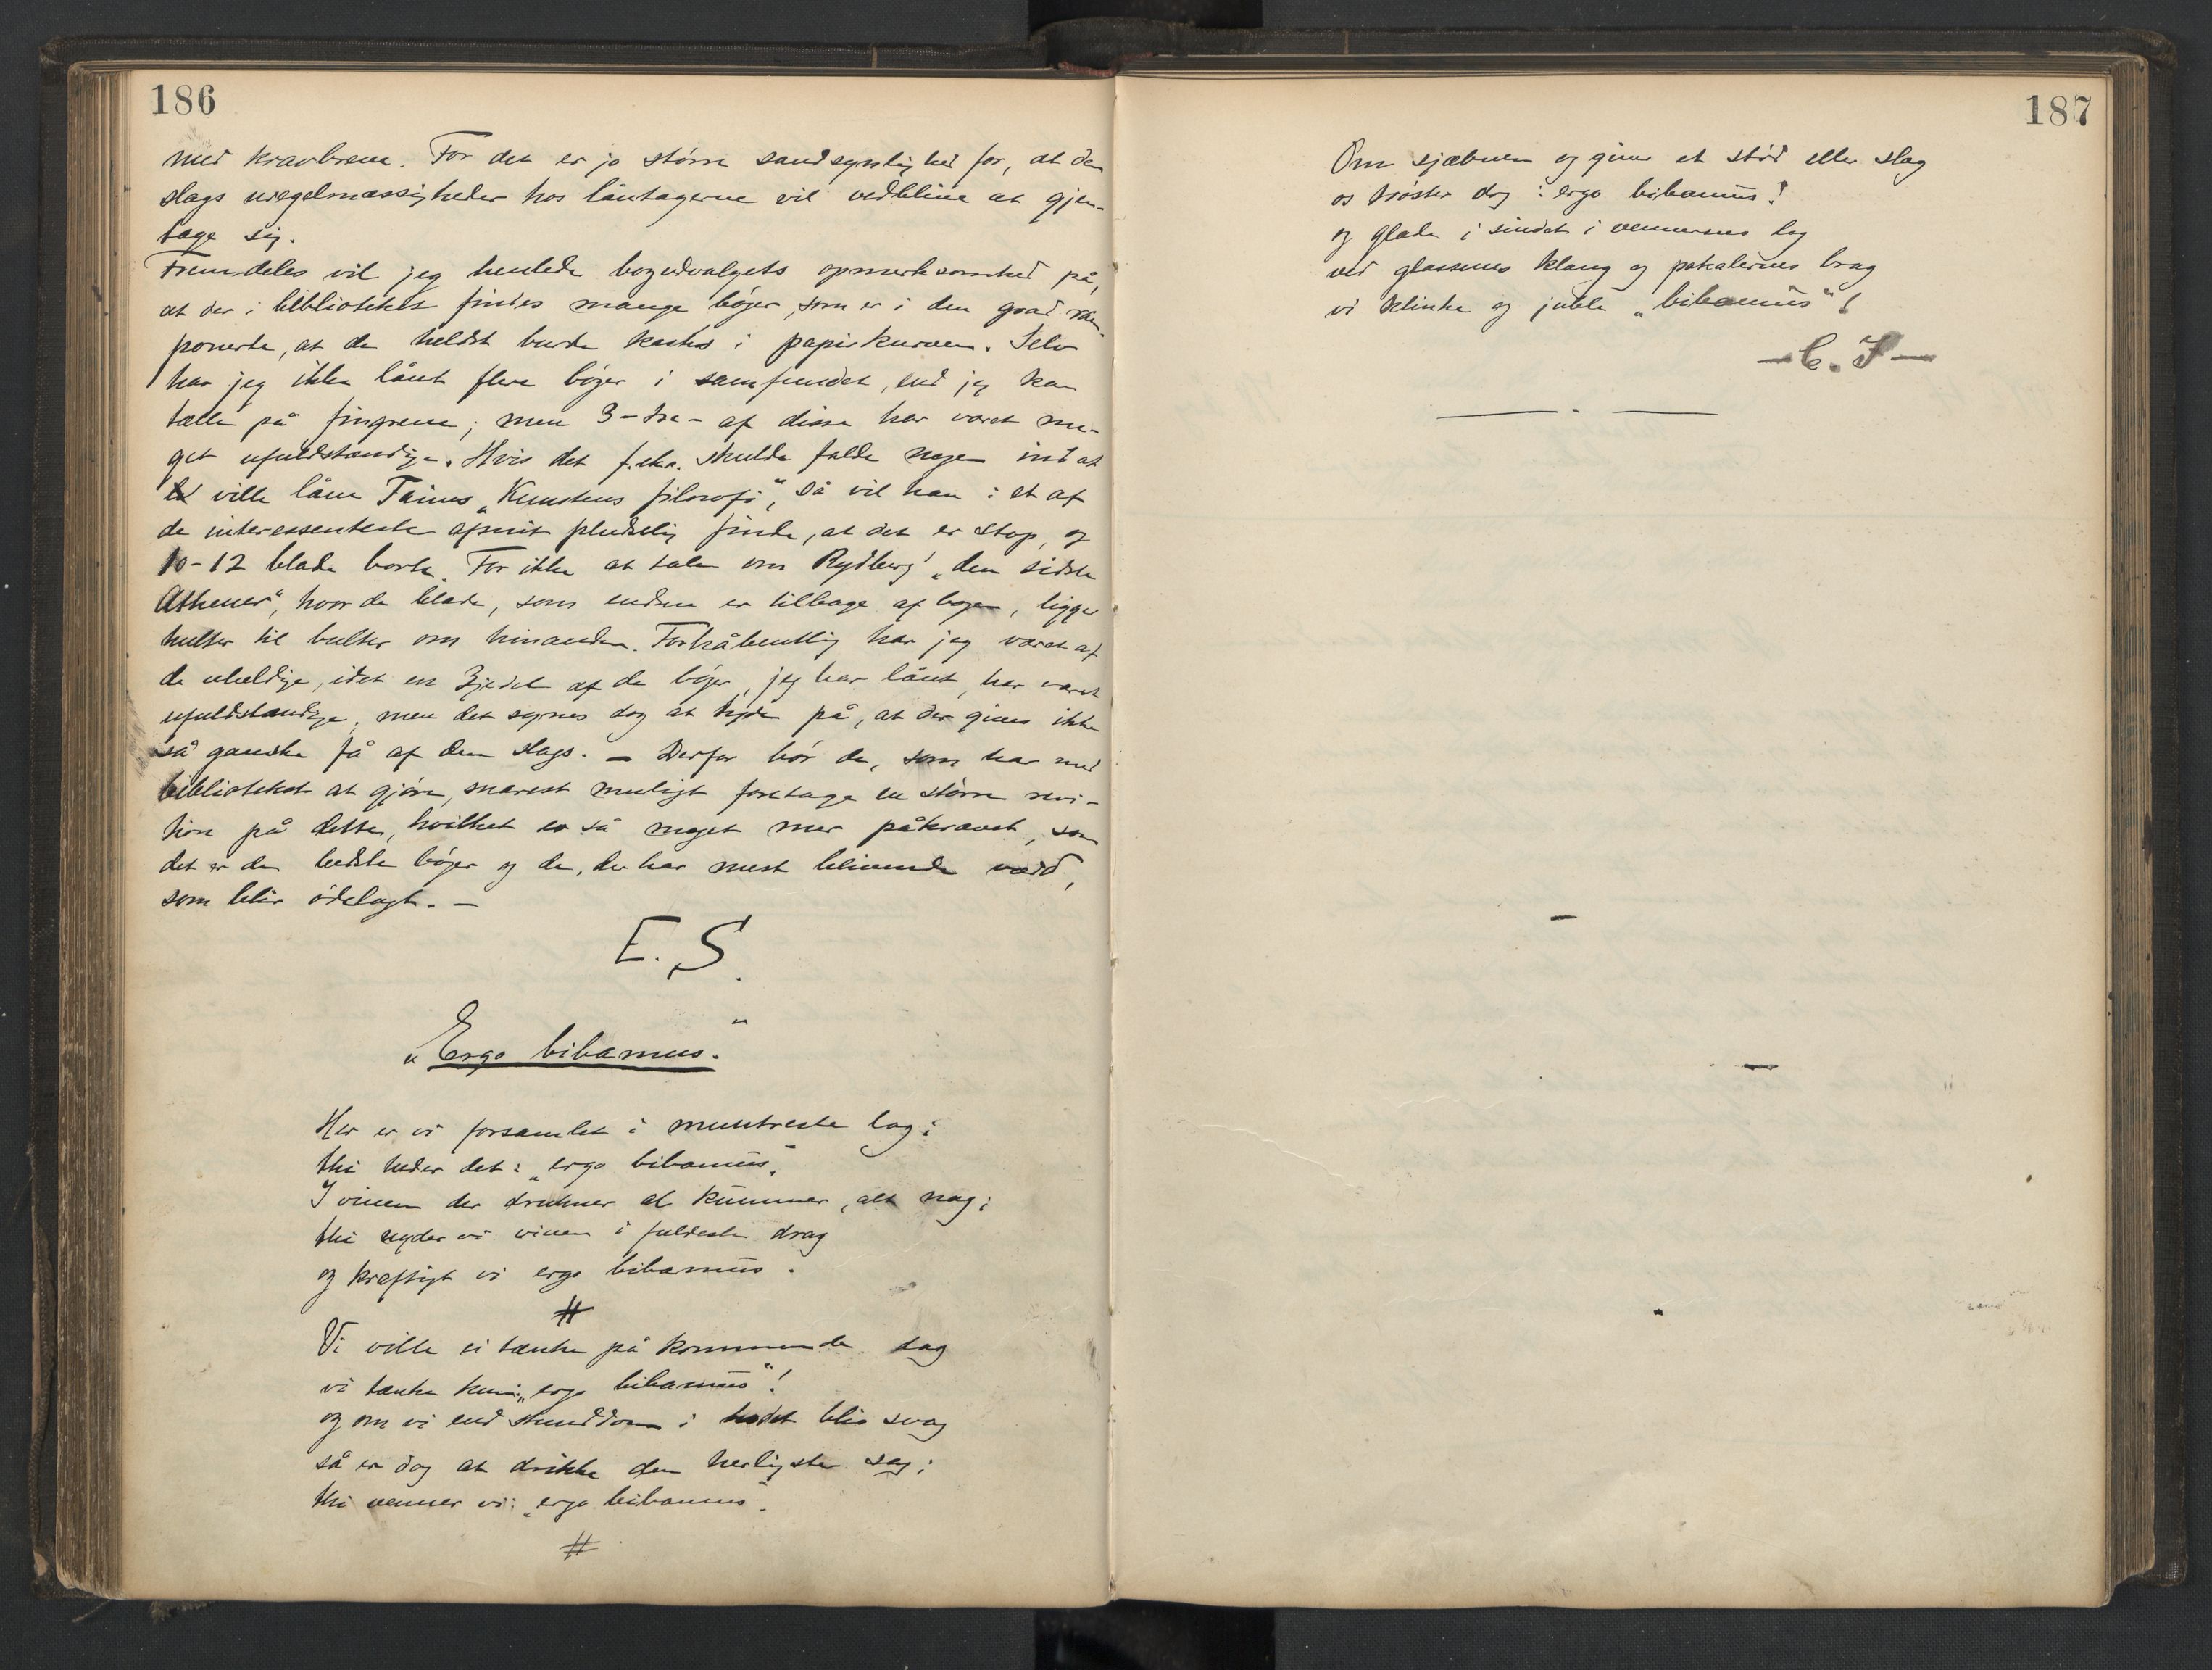 186
med kravbreve. For det er jo større sandsynlighed for, at den
slags uregelmæssigheder hos låntagerne vil vedblive at gjen-
tage sig.
Fremdeles vil jeg henlede bogudvalgets opmerksomhed på,
at der i biblioteket findes mange bøger, som er i den grad ram-
ponerte, at de heldst burde kastes i papirkurven. Selv
har jeg ikke lånt flere bøger i samfundet, end jeg kan
tælle på fingrene; men 3-tre- af disse har været me-
get ufuldstændige. Hvis det f.eks. skulde falde nogen ind at
ville låne Taines „Kunstens filosofi“, så vil han i et af
de interessanteste afsnit pludselig finde, at det er stop, og
10-12 blade borte. For ikke at tale om Rydberg' „den sidste
Athener“, hvor de blade, som endnu er tilbage af bogen, ligger
hulter til bulter om hinanden. Forhåbentlig har jeg været af
de uheldige, idet en 3jedel af de bøger, jeg har lånt, har været
ufuldstændige, men det synes dog at tyde på, at der gives ikke
så ganske få af den slags. – Derfor bør de, som har med
biblioteket at gjøre, snarest muligt foretage en større revi-
sion på dette, hvilket er så meget mer påkrævet, som
det er de bedste bøger og de, der har mest blivende værd,
som blir ødelagt. –
E. S.
„Ergo bibamus.“
Her er vi forsamlet i muntreste lag;
thi heder det: „ergo bibamus“.
I vinen der drukner al kummer, alt nag;
thi nyder vi vinen i fuldeste drag
og kraftigt vi ergo bibamus.
#
Vi ville ei tænke på kommende dag
vi tænke kun: „ergo bibamus“!
og om vi end stunddom i hodet blir svag
så er dog at drikke den herligste sag;
thi venner vi: „ergo bibamus“.
#
187
Om skjæbnen og giver et stød eller slag
os trøster dog: ergo bibamus!
og glade i sindet i vennernes lag
ved glassenes klang og pokalernes brag
vi klinke og juble „bibamus“!
— C. F —